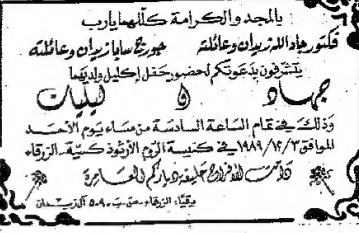 بالمجد والكرامة كللهما يارب
فكتور جاد الله زيدان وعائلته جورج سابا زيدان وعائلته
يتشرفون بدعوتكم لحضور حفل إكليل ولديهما
جهاد و ليليات
وذلك في تمام الساعة السادسة من مساء يوم الأحد
الموافق ١٩٨٩/١٢/٣ في كنيسة الروم الأرثوذكسية ـ الزرقاء
ودامت الأفراح حليفة دياركم العامرة
برقيا: الزرقاء ـ ص.ب ٥٠٩ آل زيدان